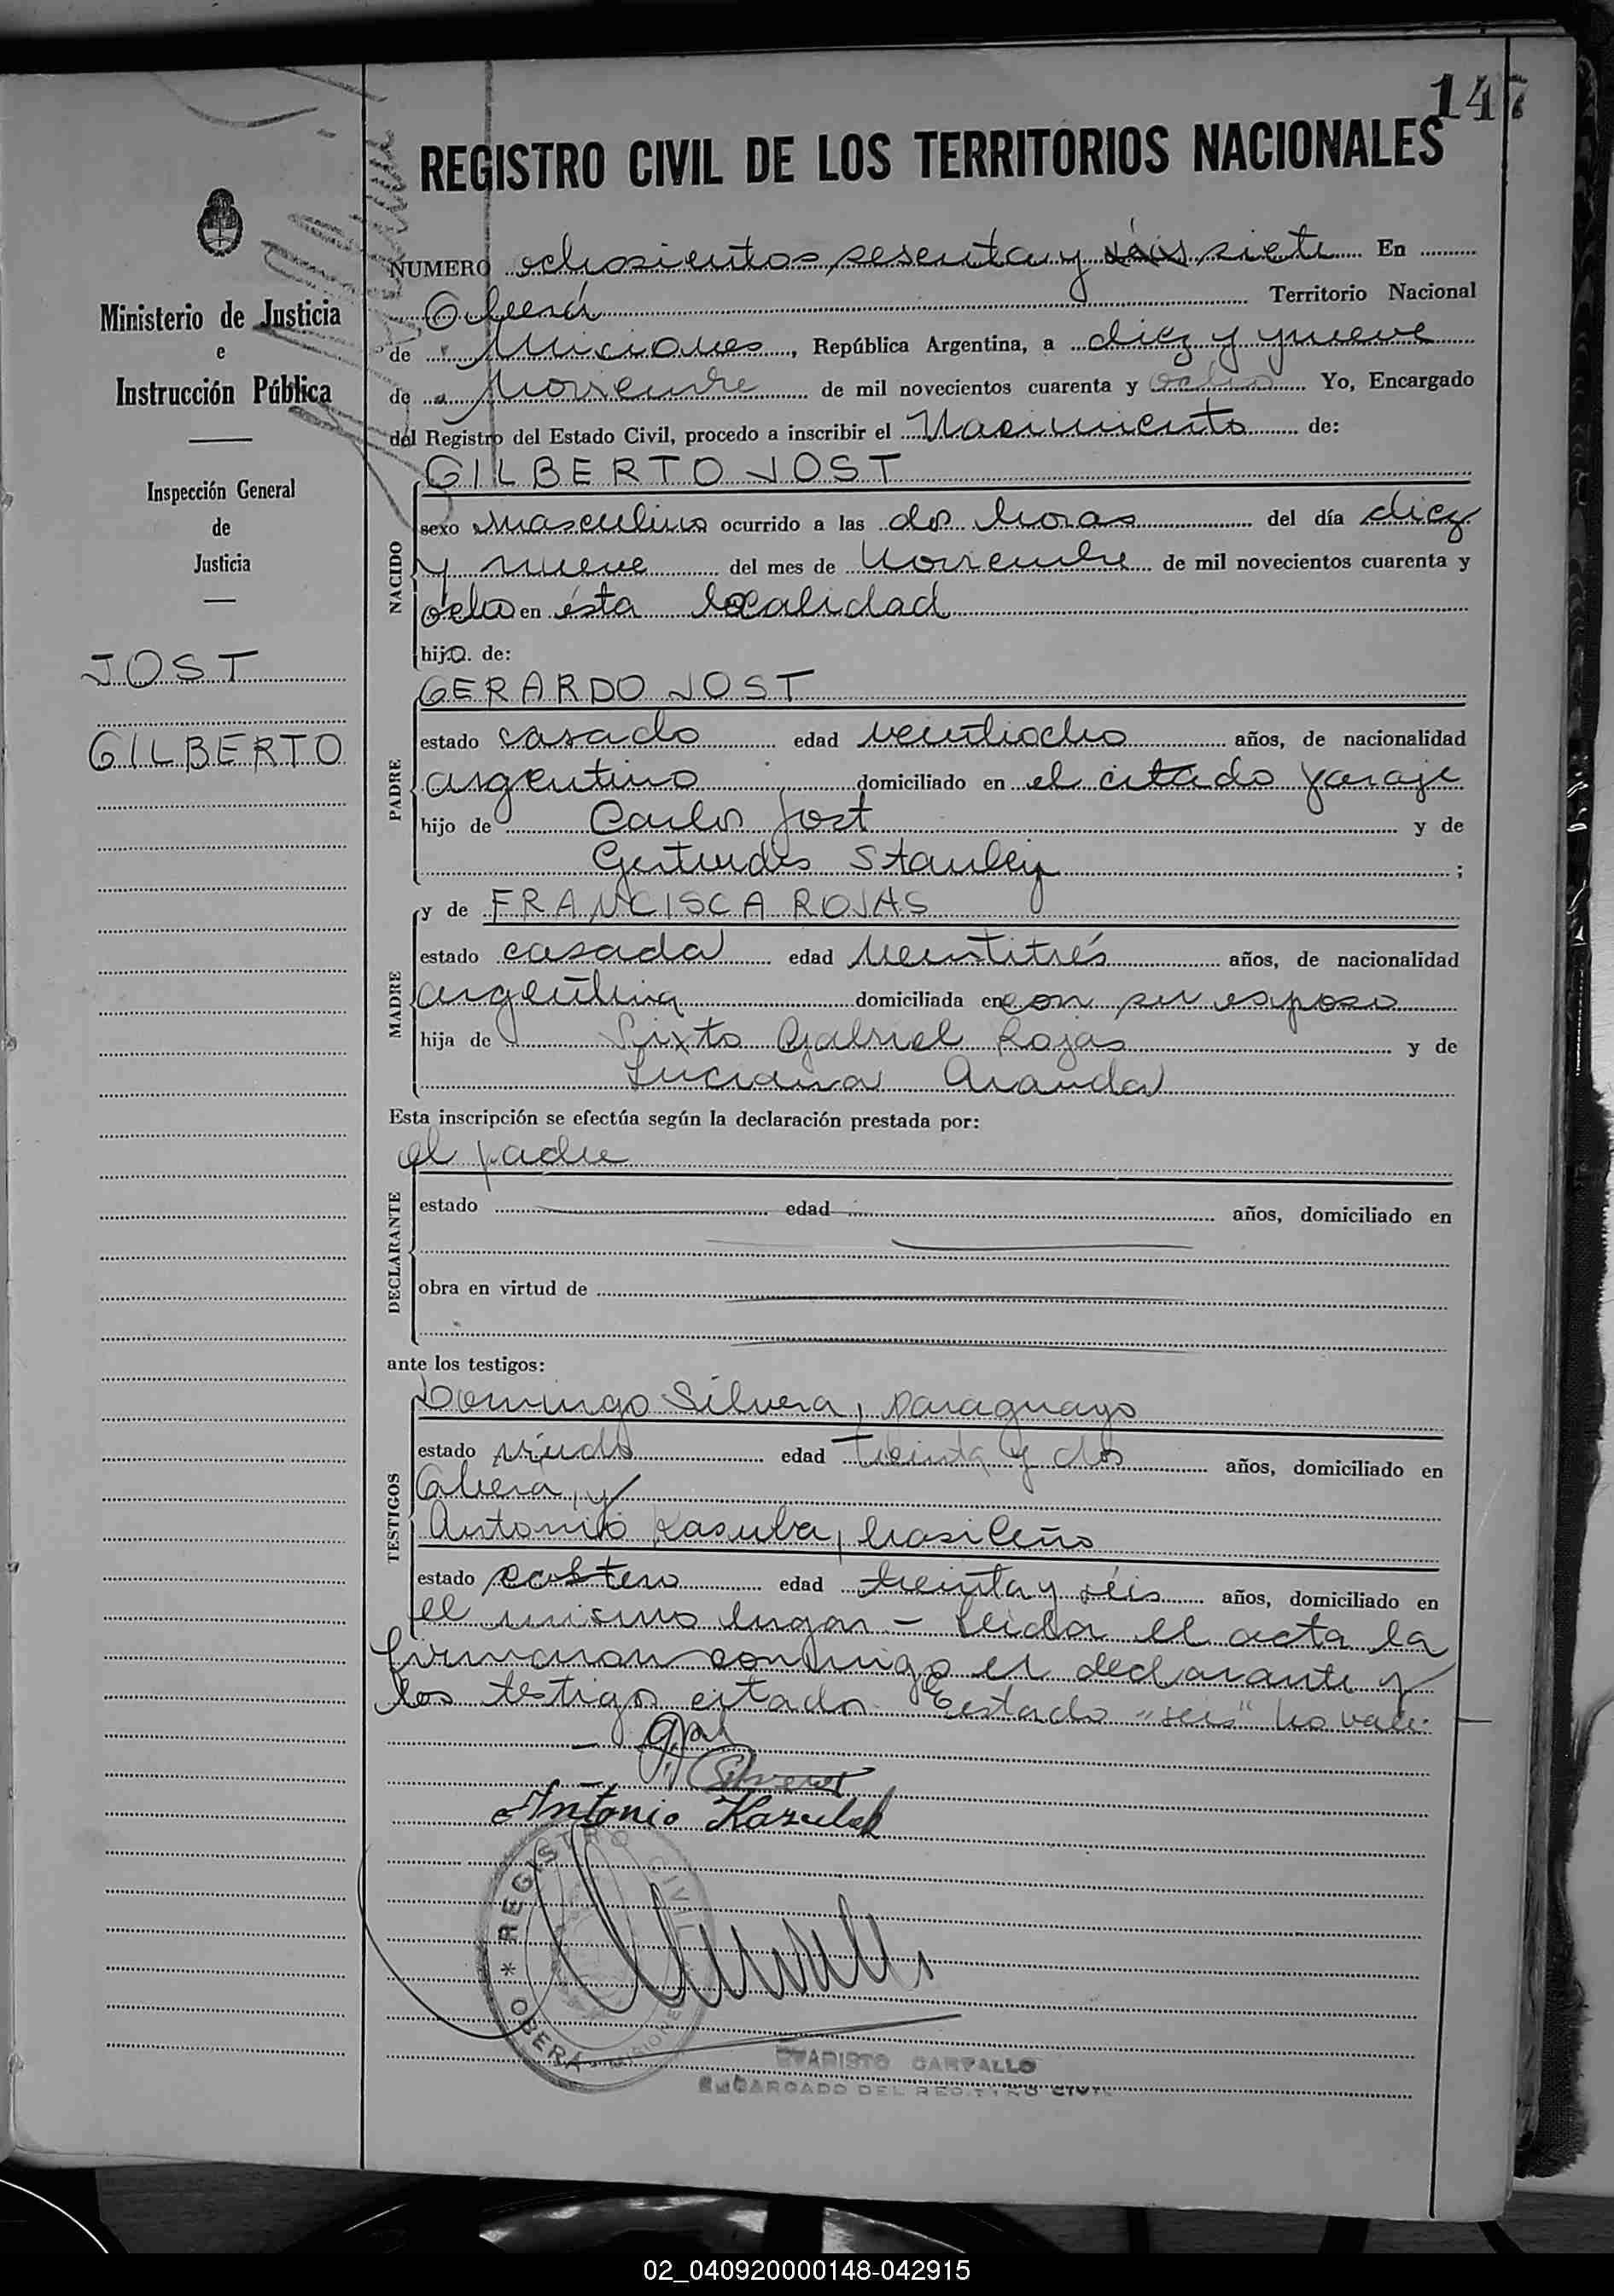 147
REGISTRO CIVIL DE LOS TERRITORIOS NACIONALES
Ministerio de Justicia
e
Instrucción Pública
Inspección General
de
Justicia
JOST
GILBERTO
NUMERO ochosientos sesenta y séis siete En
Oberá Territorio Nacional
de Misiones, República Argentina, a diez y nueve
de Noviembre de mil novecientos cuarenta y ocho Yo, Encargado
del Registro del Estado Civil, procedo a inscribir el Nacimiento de:
GILBERTO JOST
NACIDO
sexo masculino ocurrido a las dos horas del día diez
y nueve del mes de Noviembre de mil novecientos cuarenta y
ocho en ésta localidad
hijo. de:
GERARDO JOST
PADRE
estado casado edad veintiocho años, de nacionalidad
argentino domiciliado en el citado paraje
hijo de Carlos Jost y de
Gertrudis Stanley ;
y de FRANCISCA ROJAS
MADRE
estado casada edad veintitrés años, de nacionalidad
argentina domiciliada en con su esposo
hija de Sixto Gabriel Rojas y de
Luciana Aranda
Esta inscripción se efectúa según la declaración prestada por:
el padre
DECLARANTE
estado edad años, domiciliado en
obra en virtud de
ante los testigos:
TESTIGOS
Domingo Silvera, paraguayo
estado viudo edad treinta y dos años, domiciliado en
Oberá, y
Antonio Kasuba, brasileño
estado soltero edad treinta y séis años, domiciliado en
el mismo lugar - Leida el acta la
firmaron conmigo el declarante y
los testigos citados. Testado "seis" no vale.
Silvera
Antonio Kazubek
* REGISTRO CIVIL
OBERA - MISIONES
EVARISTO CARVALLO
ENCARGADO DEL REGISTRO CIVIL
02_040920000148-042915